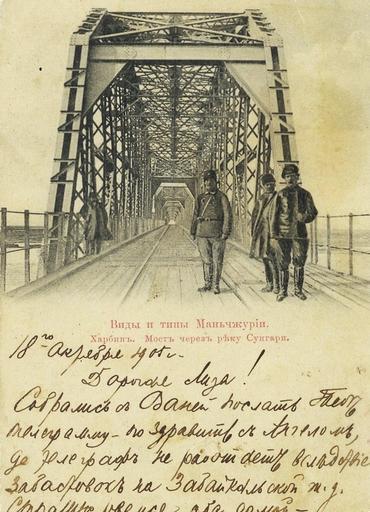 Виды и типы Маньчжуріи.
Харбинъ. Мостъ черезъ рѣку Сунгари.
18го октября 1905 г.
Дорогая Лиза!
Собрались с Ваней послать Тебѣ
телеграмму - поздравить с Ангелом,
да телеграфъ не работаетъ вследствіе
забастовок на Забайкальской ж. д.